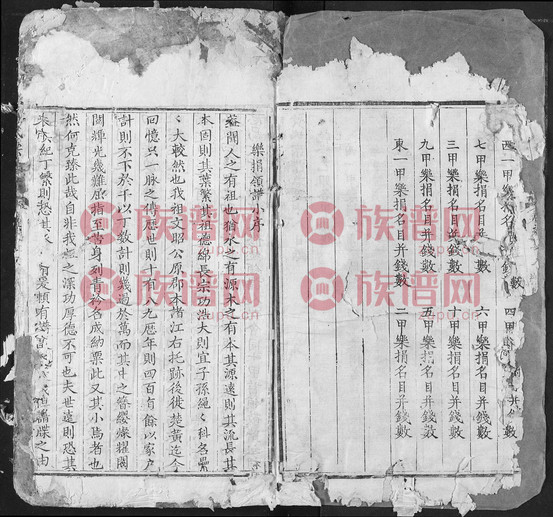 西一甲樂捐名目并錢數 四甲樂捐名目并錢數
七甲樂捐名目并錢數 六甲樂捐名目并錢數
三甲樂捐名目并錢數 十甲樂捐名目并錢數
九甲樂捐名目并錢數 五甲樂捐名目并錢數
東一甲樂捐名目并錢數 二甲樂捐名目并錢數
樂捐領譜小序
蓋聞人之有祖也猶水之有源木之有本其源遠則其流長其
本固則其葉繁其祖德綿長宗功浩大則宜子孫繩〻科名纍
〻大較然也我祖文昭公原郡本諸江右托跡後徙楚黃迄今
回憶只一脉之傳歷世則十有八九歷年則四百有餘以家戶
計則不下於千以丁數計則幾過於萬而其中之簪纓燦耀閥
閱輝光幾難屈指至若身列貴於名成納票此又其小焉者也
然何克臻此哉自非我 之源功厚德不可也夫世遠則恐其
紀丁繁則恐其 譜牒之由
族谱网
zupu.cn
族谱网
zupu.cn
族谱网
zupu.cn
族谱网
zupu.cn